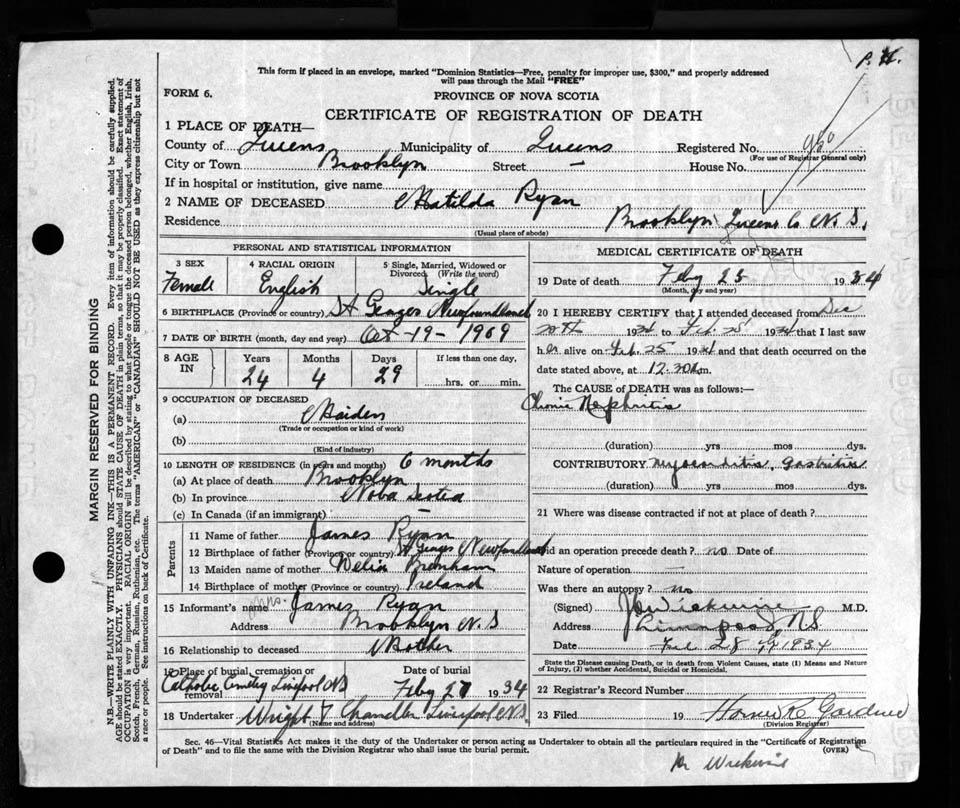 P. H.
This form if placed in an envelope, marked "Dominion Statistics—Free, penalty for improper use, $300," and properly addressed
will pass through the Mail "FREE"
FORM 6.
PROVINCE OF NOVA SCOTIA
CERTIFICATE OF REGISTRATION OF DEATH
1 PLACE OF DEATH—
County of Queens Municipality of Queens Registered No.
(For use of Registrar General only)
City or Town Brooklyn Street — House No.
If in hospital or institution, give name
2 NAME OF DECEASED Matilda Ryan
Residence Brooklyn Queens Co N. S.
(Usual place of abode)
PERSONAL AND STATISTICAL INFORMATION
3 SEX Female
4 RACIAL ORIGIN English
5 Single, Married, Widowed or Divorced (Write the word) Single
6 BIRTHPLACE (Province or country) St Georges Newfoundland
7 DATE OF BIRTH (month, day and year) Oct - 19 - 1909
8 AGE IN Years 24 Months 4 Days 29 If less than one day, hrs. or min.
9 OCCUPATION OF DECEASED
(a) Maiden
(Trade or occupation or kind of work)
(b)
(Kind of industry)
10 LENGTH OF RESIDENCE (in years and months) 6 months
(a) At place of death Brooklyn
(b) In province Nova Scotia
(c) In Canada (if an immigrant) —
Parents
11 Name of father James Ryan
12 Birthplace of father (Province or country) St Georges Newfoundland
13 Maiden name of mother Delia
14 Birthplace of mother (Province or country) Ireland
15 Informant's name Mrs. James Ryan
Address Brooklyn N. S
16 Relationship to deceased Mother
17 Place of burial, cremation or removal Catholic Cemetery Liverpool NS
Date of burial Feby 27 1934
18 Undertaker Wright & Chandler Liverpool N.S.
(Name and address)
MEDICAL CERTIFICATE OF DEATH
19 Date of death Feby 25 1934
(Month, day and year)
20 I HEREBY CERTIFY that I attended deceased from Dec
20th 1934 to Feb. 25 1934 that I last saw
her alive on Feb. 25 1934 and that death occurred on the
date stated above, at 12.30 m.
The CAUSE of DEATH was as follows:—
Chronic Nephritis
(duration) yrs mos dys.
CONTRIBUTORY Myocarditis, Gastritis
(duration) yrs. mos. dys.
21 Where was disease contracted if not at place of death?
Did an operation precede death? no Date of
Nature of operation —
Was there an autopsy? no
(Signed) Wickwire M.D.
Address Liverpool N.S.
Date Feb 28 1934
State the Disease causing Death, or in death from Violent Causes, state (1) Means and Nature
of Injury, (2) whether Accidental, Suicidal or Homicidal.
22 Registrar's Record Number
23 Filed 19 Gardner
(Division Registrar)
Sec. 46—Vital Statistics Act makes it the duty of the Undertaker or person acting as Undertaker to obtain all the particulars required in the "Certificate of Registration
of Death" and to file the same with the Division Registrar who shall issue the burial permit.
(OVER)
Dr Wickwire
MARGIN RESERVED FOR BINDING
N.B.—WRITE PLAINLY WITH UNFADING INK—THIS IS A PERMANENT RECORD. Every item of information should be carefully supplied.
AGE should be stated EXACTLY. PHYSICIANS should STATE CAUSE OF DEATH in plain terms, so that it may be properly classified. Exact statement of
OCCUPATION is very important. RACIAL ORIGIN will be described by stating to what people or tongue the deceased person belonged, whether English, Irish,
Scotch, French, German, Russian, Ruthenian, etc. The terms "AMERICAN" or "CANADIAN SHOULD NOT BE USED" as they express citizenship but not
a race or people. See instructions on back of Certificate.